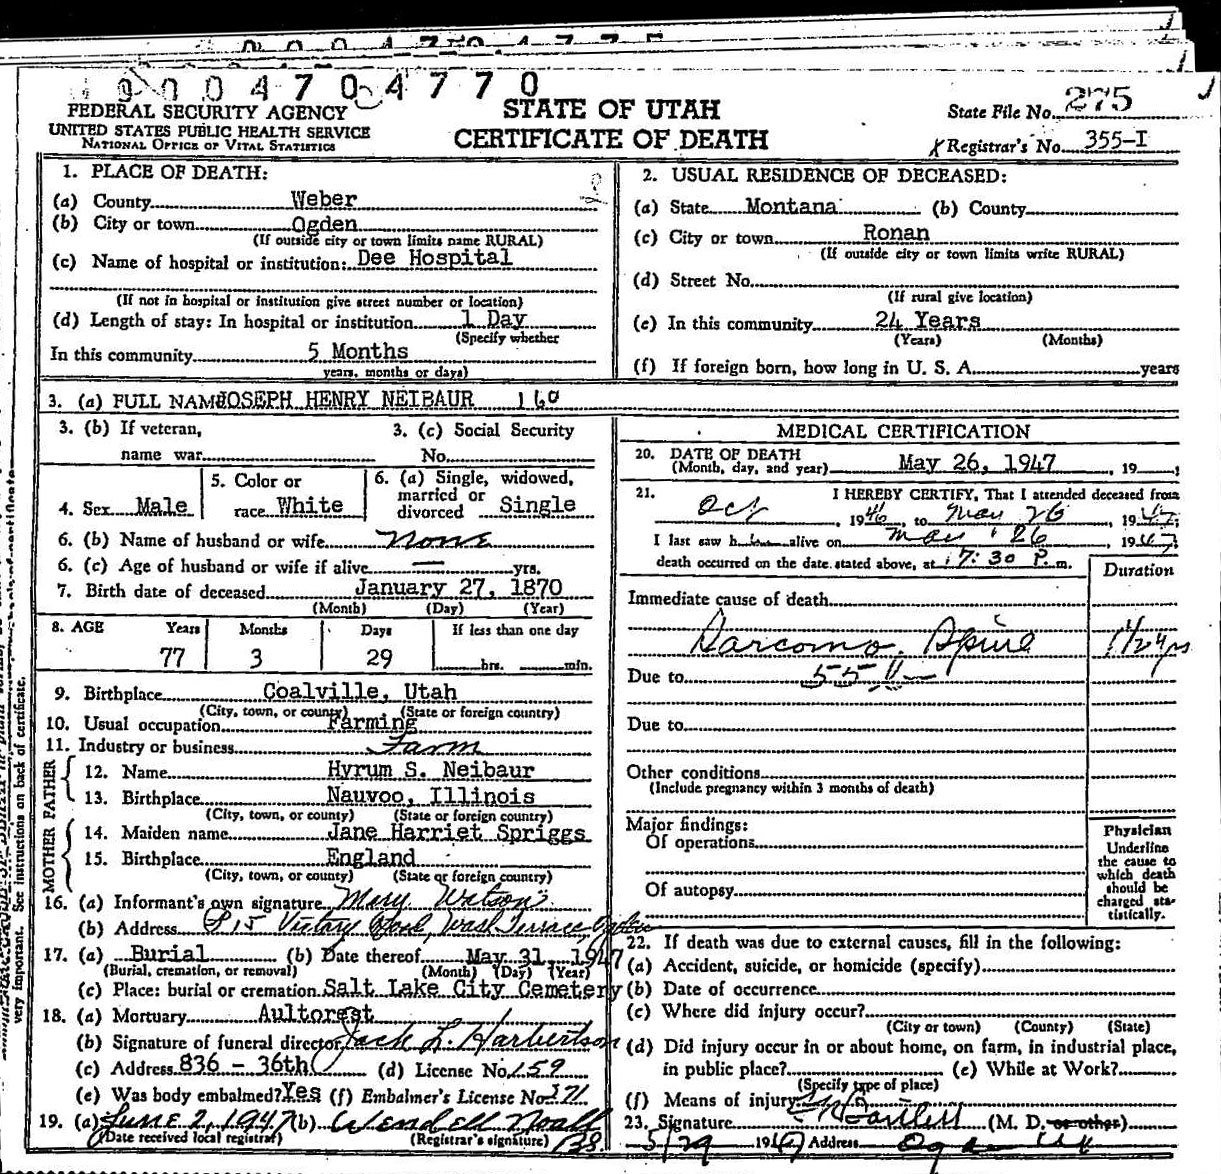 0004704770
FEDERAL SECURITY AGENCY
UNITED STATES PUBLIC HEALTH SERVICE
NATIONAL OFFICE OF VITAL STATISTICS
STATE OF UTAH
CERTIFICATE OF DEATH
State File No. 275
Registrar's No. 355-I
1. PLACE OF DEATH:
(a) County Weber
(b) City or town Ogden
(If outside city or town limits name RURAL)
(c) Name of hospital or institution: Dee Hospital
(If not in hospital or institution give street number or location)
(d) Length of stay: In hospital or institution 1 Day
(Specify whether
In this community 5 Months
years, months or days)
2. USUAL RESIDENCE OF DECEASED:
(a) State Montana (b) County
(c) City or town Ronan
(If outside city or town limits write RURAL)
(d) Street No.
(If rural give location)
(e) In this community 24 Years
(Years) (Months)
(f) If foreign born, how long in U. S. A. years
3. (a) FULL NAME JOSEPH HENRY NEIBAUR 160
3. (b) If veteran,
name war
3. (c) Social Security
No.
4. Sex Male
5. Color or
race White
6. (a) Single, widowed,
married or
divorced Single
6. (b) Name of husband or wife None
6. (c) Age of husband or wife if alive — yrs.
7. Birth date of deceased January 27, 1870
(Month) (Day) (Year)
8. AGE Years Months Days If less than one day
77 3 29 hrs. min.
9. Birthplace Coalville, Utah
(City, town, or county) (State or foreign country)
10. Usual occupation Farming
11. Industry or business Farm
FATHER
12. Name Hyrum S. Neibaur
13. Birthplace Nauvoo, Illinois
(City, town, or county) (State or foreign country)
MOTHER
14. Maiden name Jane Harriet Spriggs
15. Birthplace England
(City, town, or county) (State or foreign country)
16. (a) Informant's own signature Mary Watson
(b) Address Victory Road, Wash Terrace, Ogden
17. (a) Burial (b) Date thereof May 31, 1947
(Burial, cremation, or removal) (Month) (Day) (Year)
(c) Place: burial or cremation Salt Lake City Cemetery
18. (a) Mortuary Aultorest
(b) Signature of funeral director Jack L. Harbertson
(c) Address 836 - 36th (d) License No. 159
(e) Was body embalmed? Yes (f) Embalmer's License No. 371
19. (a) June 2, 1947 (b) Wendell Noall
(Date received local registrar) (Registrar's signature) 138
MEDICAL CERTIFICATION
20. DATE OF DEATH
(Month, day, and year) May 26, 1947, 19 ;
21. I HEREBY CERTIFY, That I attended deceased from
Oct, 1946, to May 26, 1947;
I last saw h alive on May 26, 1947;
death occurred on the date stated above, at 7:30 P. m.
Duration
Immediate cause of death
Sarcoma, Spine 1 1/2 yrs
Due to 55
Due to
Other conditions
(Include pregnancy within 3 months of death)
Major findings:
Of operations
Of autopsy
Physician
Underline
the cause to
which death
should be
charged sta-
tistically.
22. If death was due to external causes, fill in the following:
(a) Accident, suicide, or homicide (specify)
(b) Date of occurrence
(c) Where did injury occur?
(City or town) (County) (State)
(d) Did injury occur in or about home, on farm, in industrial place,
in public place? (e) While at Work?
(Specify type of place)
(f) Means of injury
23. Signature Bartlett (M. D. or other)
5/29 1947 Address Ogden Utah
very important. See instructions on back of certificate.